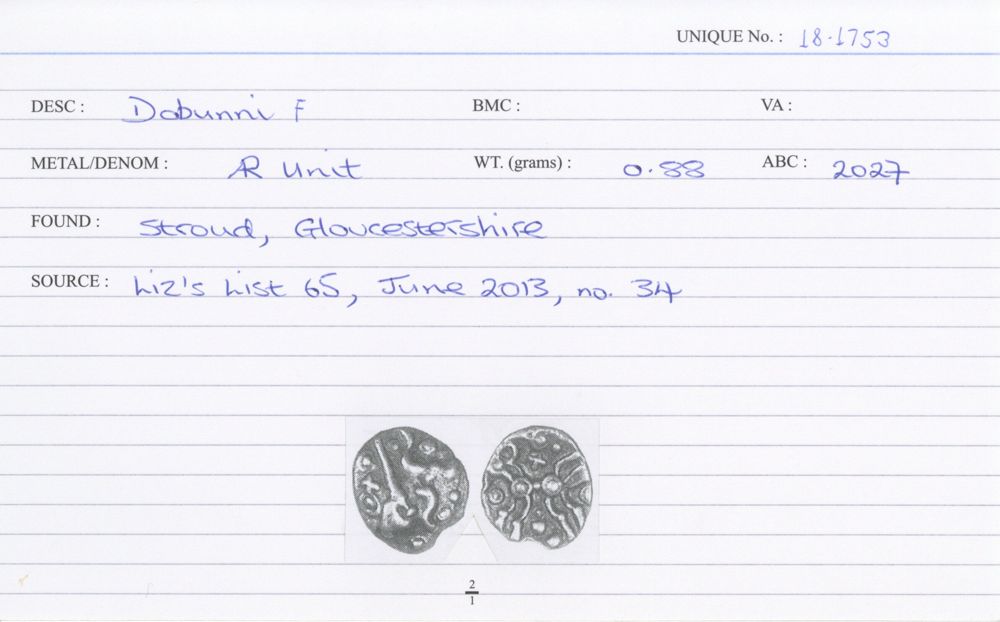 UNIQUE No. : 18-1753
DESC : Dobunni F BMC : VA :
METAL/DENOM : AR Unit WT. (grams) : 0.88 ABC : 2027
FOUND : Stroud, Gloucestershire
SOURCE : Liz's List 65, June 2013, no. 34
2
1